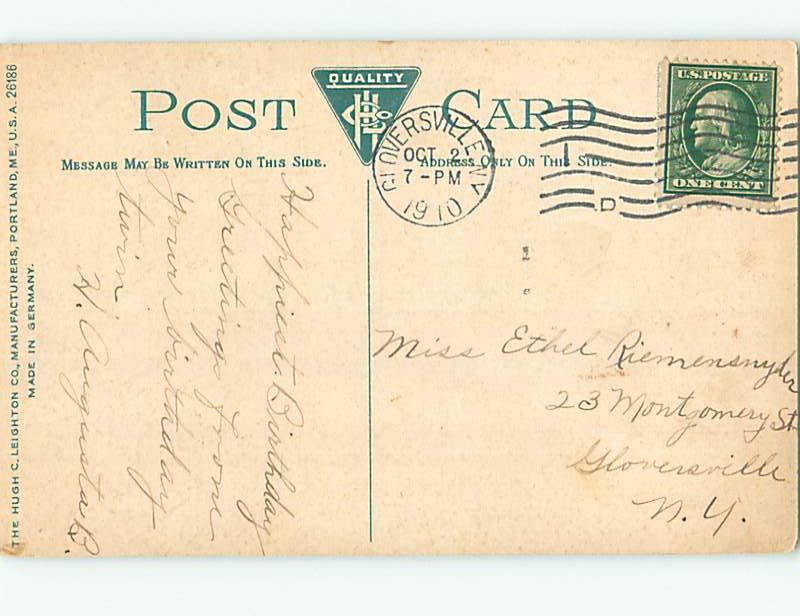 THE HUGH C. LEIGHTON CO., MANUFACTURERS, PORTLAND, ME., U.S.A. 26186
MADE IN GERMANY.
QUALITY
POST CARD
MESSAGE MAY BE WRITTEN ON THIS SIDE.
ADDRESS ONLY ON THIS SIDE.
GLOVERSVILLE N.Y.
OCT 2
7-PM
1910
D
U.S. POSTAGE
ONE CENT
Happiest Birthday
Greetings from
your birthday
twin
H. Augusta B.
Miss Ethel Riemensnyder
23 Montgomery St
Gloversville
N.Y.